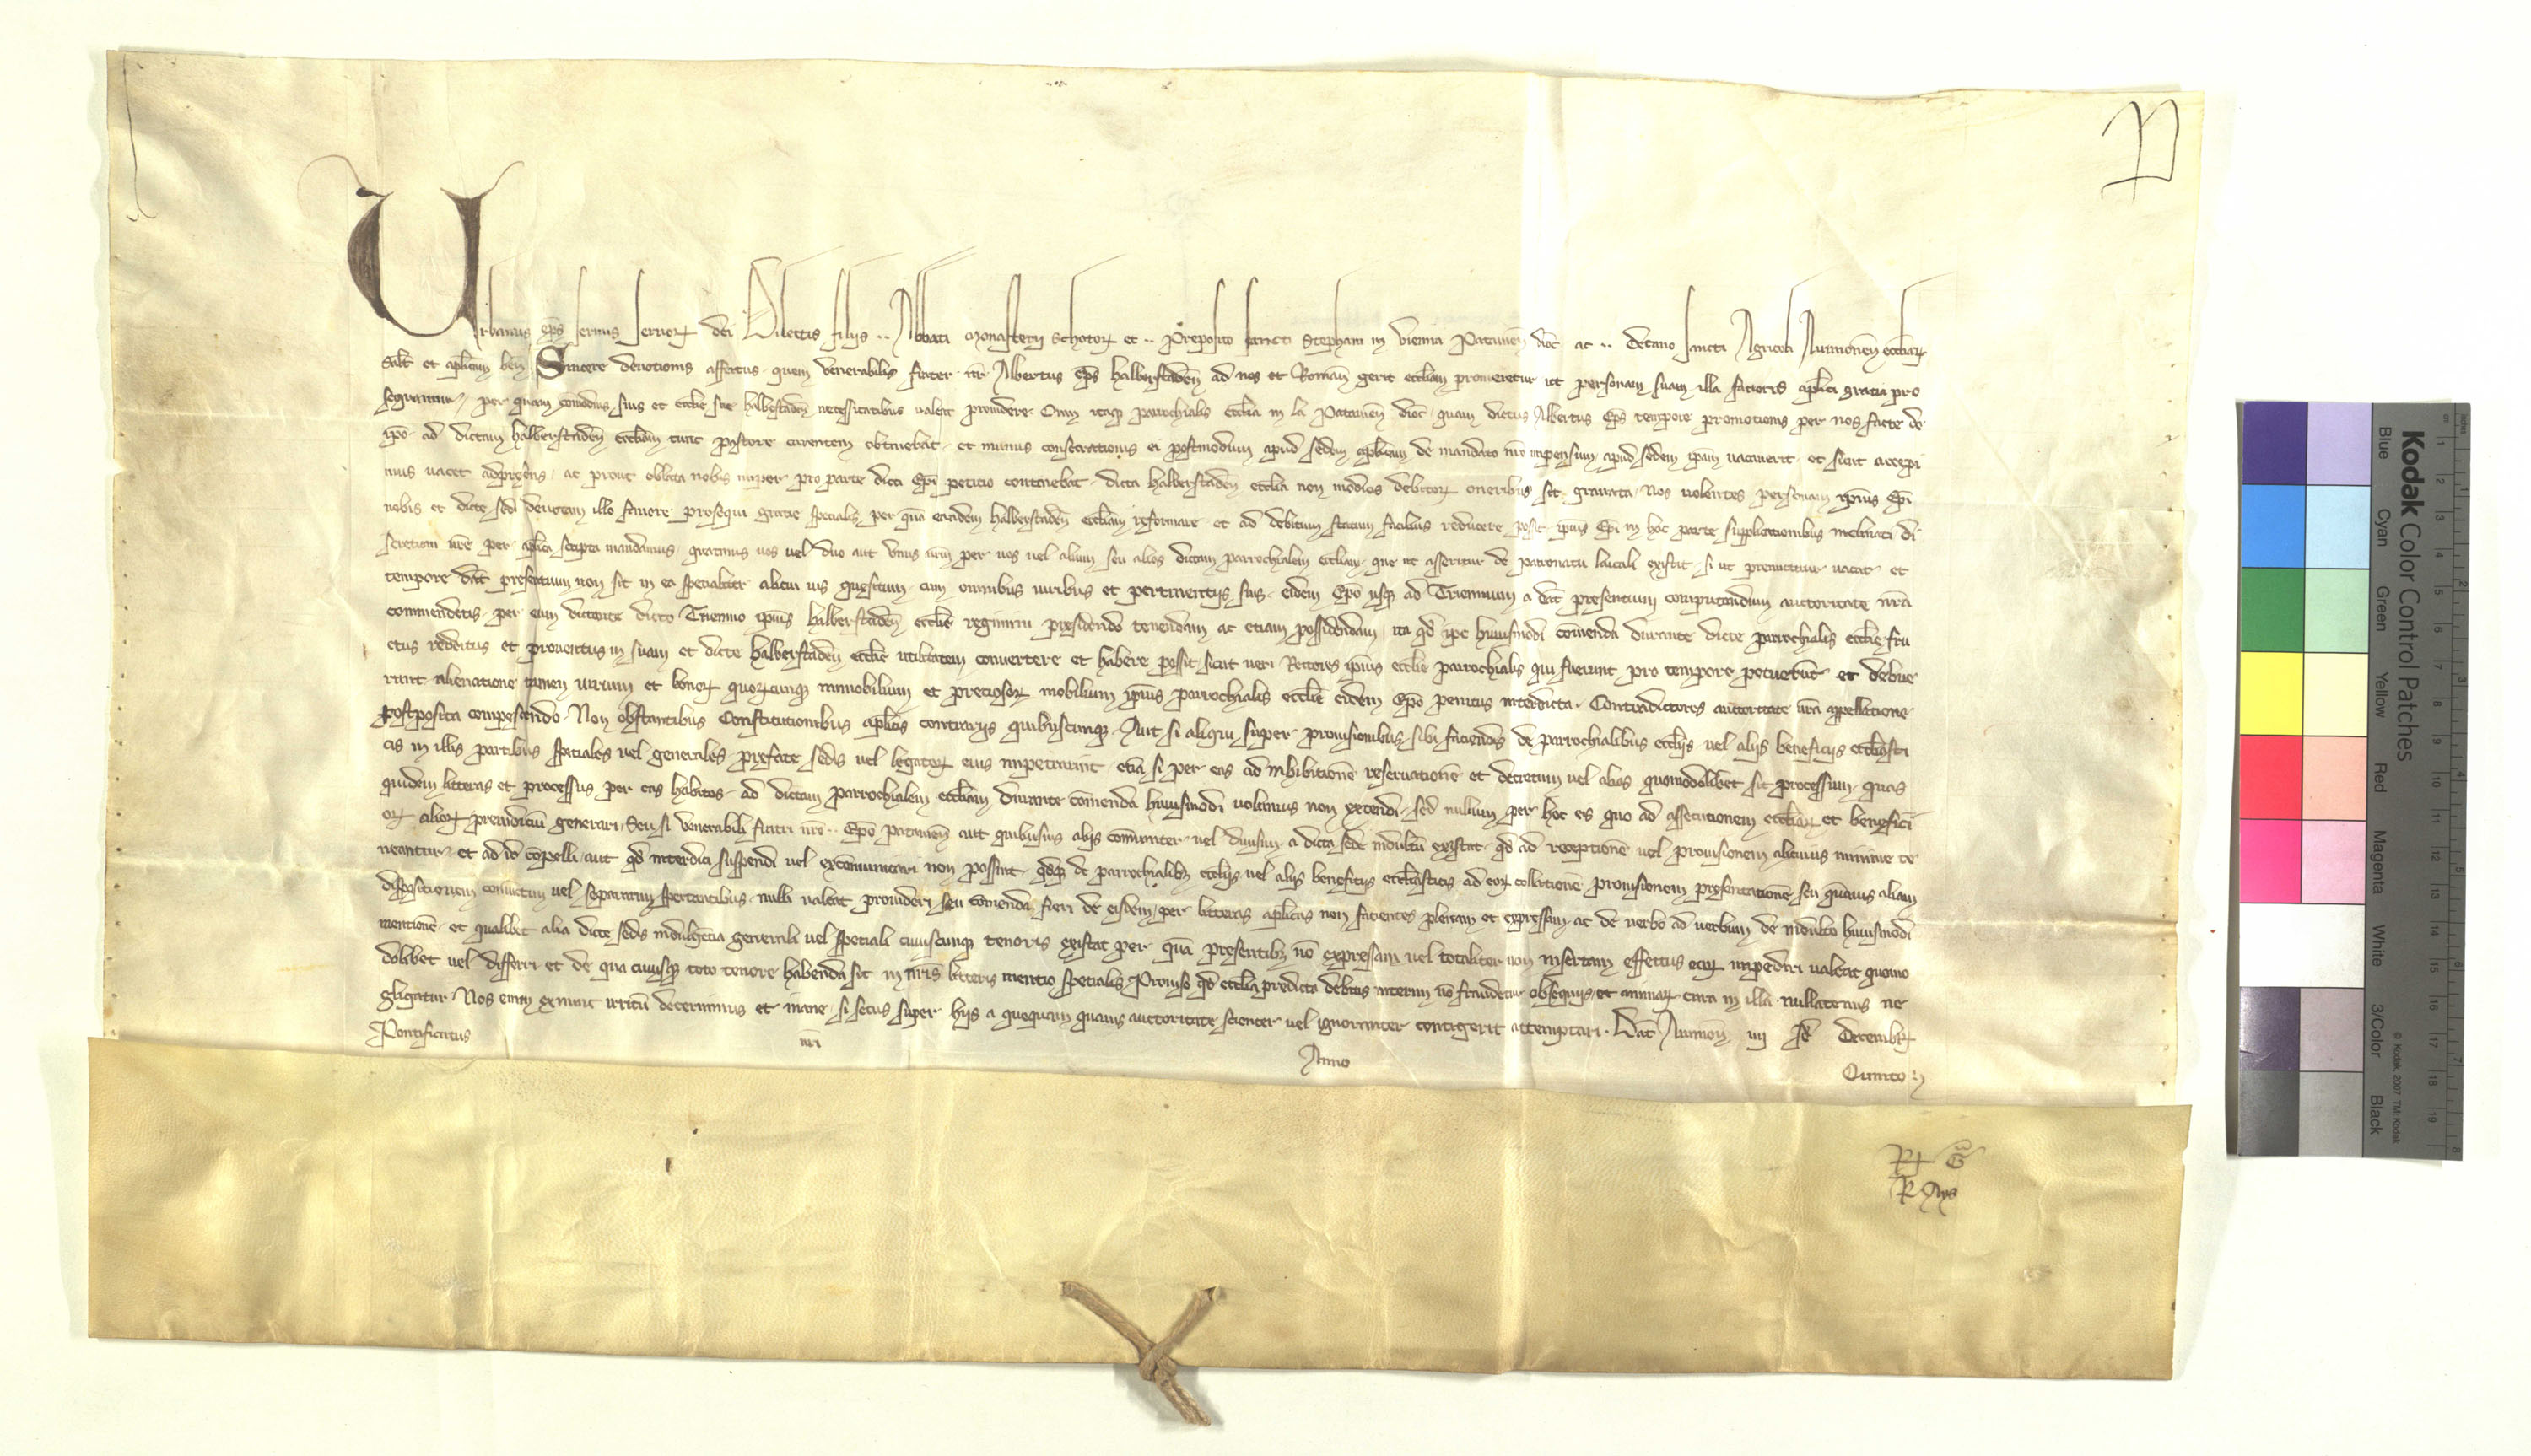 Urbanus ep̄s seruus seruoꝝ dei Dilectis filijs .. Abbati Monasterij Schotoꝝ et .. Preposito sancti Stephani in Vienna Patauieñ dioc̄ ac .. decano sancti Agricoli Auinioneñ eccl̄iaꝝ
Salt̄ et apl̄icam beñ Sincere deuotionis affectus quem venerabilis frater nr̄ Albertus Ep̄s Halberstadeñ ad nos et Romañ gerit eccl̄iam promeretur ut personam suam illa fauoris apl̄ici gratia pro
sequamur per quam comodius suis et eccl̄ie sue Halberstadeñ necessitatibus ualeat prouidere. Cum itaqꝫ parrochialis eccl̄ia in La Patauieñ dioc̄ quam dictus Albertus Ep̄s tempore promotionis per nos facte de
ip̄o ad dictam Halberstadeñ eccl̄iam tunc pastore carentem obtinebat et munus consecrationis ei postmodum apud sedem apl̄icam de mandato nr̄o impensum apud sedem ip̄am uacauerit et sicut accepi
mus uacet adpresens ac prout oblata nobis nuper pro parte dicti Ep̄i petitio continebat dicta Halberstadeñ eccl̄ia non modicis debitoꝝ oneribus sit grauata Nos uolentes personam ip̄ius Ep̄i
nobis et dicte sedi deuotam illo fauore prosequi gratie specialis per quā eandem Halberstadeñ eccl̄iam reformare et ad debitum statum facilius reducere possit ip̄ius Ep̄i in hac parte supplicationibus inclinati di
scretioni ur̄e per apl̄ica scripta mandamus quatinus uos uel duo aut unus ur̄m per uos uel alium seu alios dictam parrochialem eccl̄iam que ut asseritur de patronatu laicali existit si ut premittitur uacat et
tempore dat̄ presentium non sit in ea specialiter alicui ius quesitum cum omnibus iuribus et pertinentijs suis eidem Ep̄o usqꝫ ad Triennium a dat̄ presentium computandum auctoritate nr̄a
commendetis per eum durante dicto Triennio ip̄ius Halberstadeñ eccl̄ie regimini presidendo tenendam ac etiam possidendam ita qđ ip̄e huiusmodi com̄enda durante dicte parrochialis eccl̄ie fru
ctus redditus et prouentus in suam et dicte Halberstadeñ eccl̄ie utilitatem conuertere et habere possit sicut ueri Rectores ip̄ius eccl̄ie parrochialis qui fuerunt pro tempore potuerūt et debue
runt alienatione tamen iurium et bonoꝝ quoꝝcunqꝫ immobilium et preciosoꝝ mobilium ip̄ius parrochialis eccl̄ie eidem Ep̄o penitus interdicta. Contradictores auctoritate nr̄a appellatione
postposita compescendo. Non obstantibus Constitutionibus apl̄icis contrarijs quibuscunqꝫ. Aut si aliqui super prouisionibus sibi faciendis de parrochialibus eccl̄ijs uel alijs beneficijs eccl̄iasti
cis in illis partibus speciales uel generales prefate sedis uel legatoꝝ eius impetrarint etiā si per eas ad inhibitionē reseruationē et decretum uel alias quomodolibet sit processum quas
quidem litteras et processus per eas habitos ad dictam parrochialem eccl̄iam durante com̄enda huiusmodi uolumus non extendi sed nullum per hoc eis quo ad assecutionem eccl̄iaꝝ et beneficī
oꝝ alioꝝ preiudiciū generari Seu si venerabili fratri nr̄o .. Ep̄o Patauieñ aut quibusuis alijs comuniter uel diuisim a dicta sede indultū existat qđ ad receptionē uel prouisionem alicuius minime te
neantur et ad id cōpelli aut qđ interdici suspendi uel excōmunicari non possint qđqꝫ de parrochialibꝫ eccl̄ijs uel alijs beneficijs eccl̄iasticis ad eoꝝ collationē prouisionem presentationē seu quāuis aliam
dispositionem coniunctim uel separatim spectantibus nulli ualeat prouideri seu com̄enda fieri de eisdem per litteras apl̄icas non facientes plenam et expressam ac de uerbo ad uerbum de indulto huiusmodi
mentionē et qualibet alia dicte sedis indulgētia generali uel speciali cuiuscunqꝫ tenoris existat per quā presentibꝫ nō expressam uel totaliter non insertam effectus eaꝝ impediri ualeat quomo
dolibet uel differri et de qua cuiusqꝫ toto tenore habenda sit in nr̄is litteris mentio specialis Prouiso qđ eccl̄ia predicta debitis interim nō fraudetur obsequijs et animaꝝ cura in illa nullatenus ne
gligatur. Nos enim exnunc irritū decernimus et inane si secus super hijs a quoquam quauis auctoritate scienter uel ignoranter contigerit attemptari. Dat̄ Auinioñ iiij Id̄ Decembꝝ
Pontificatus nr̄i Anno Quinto